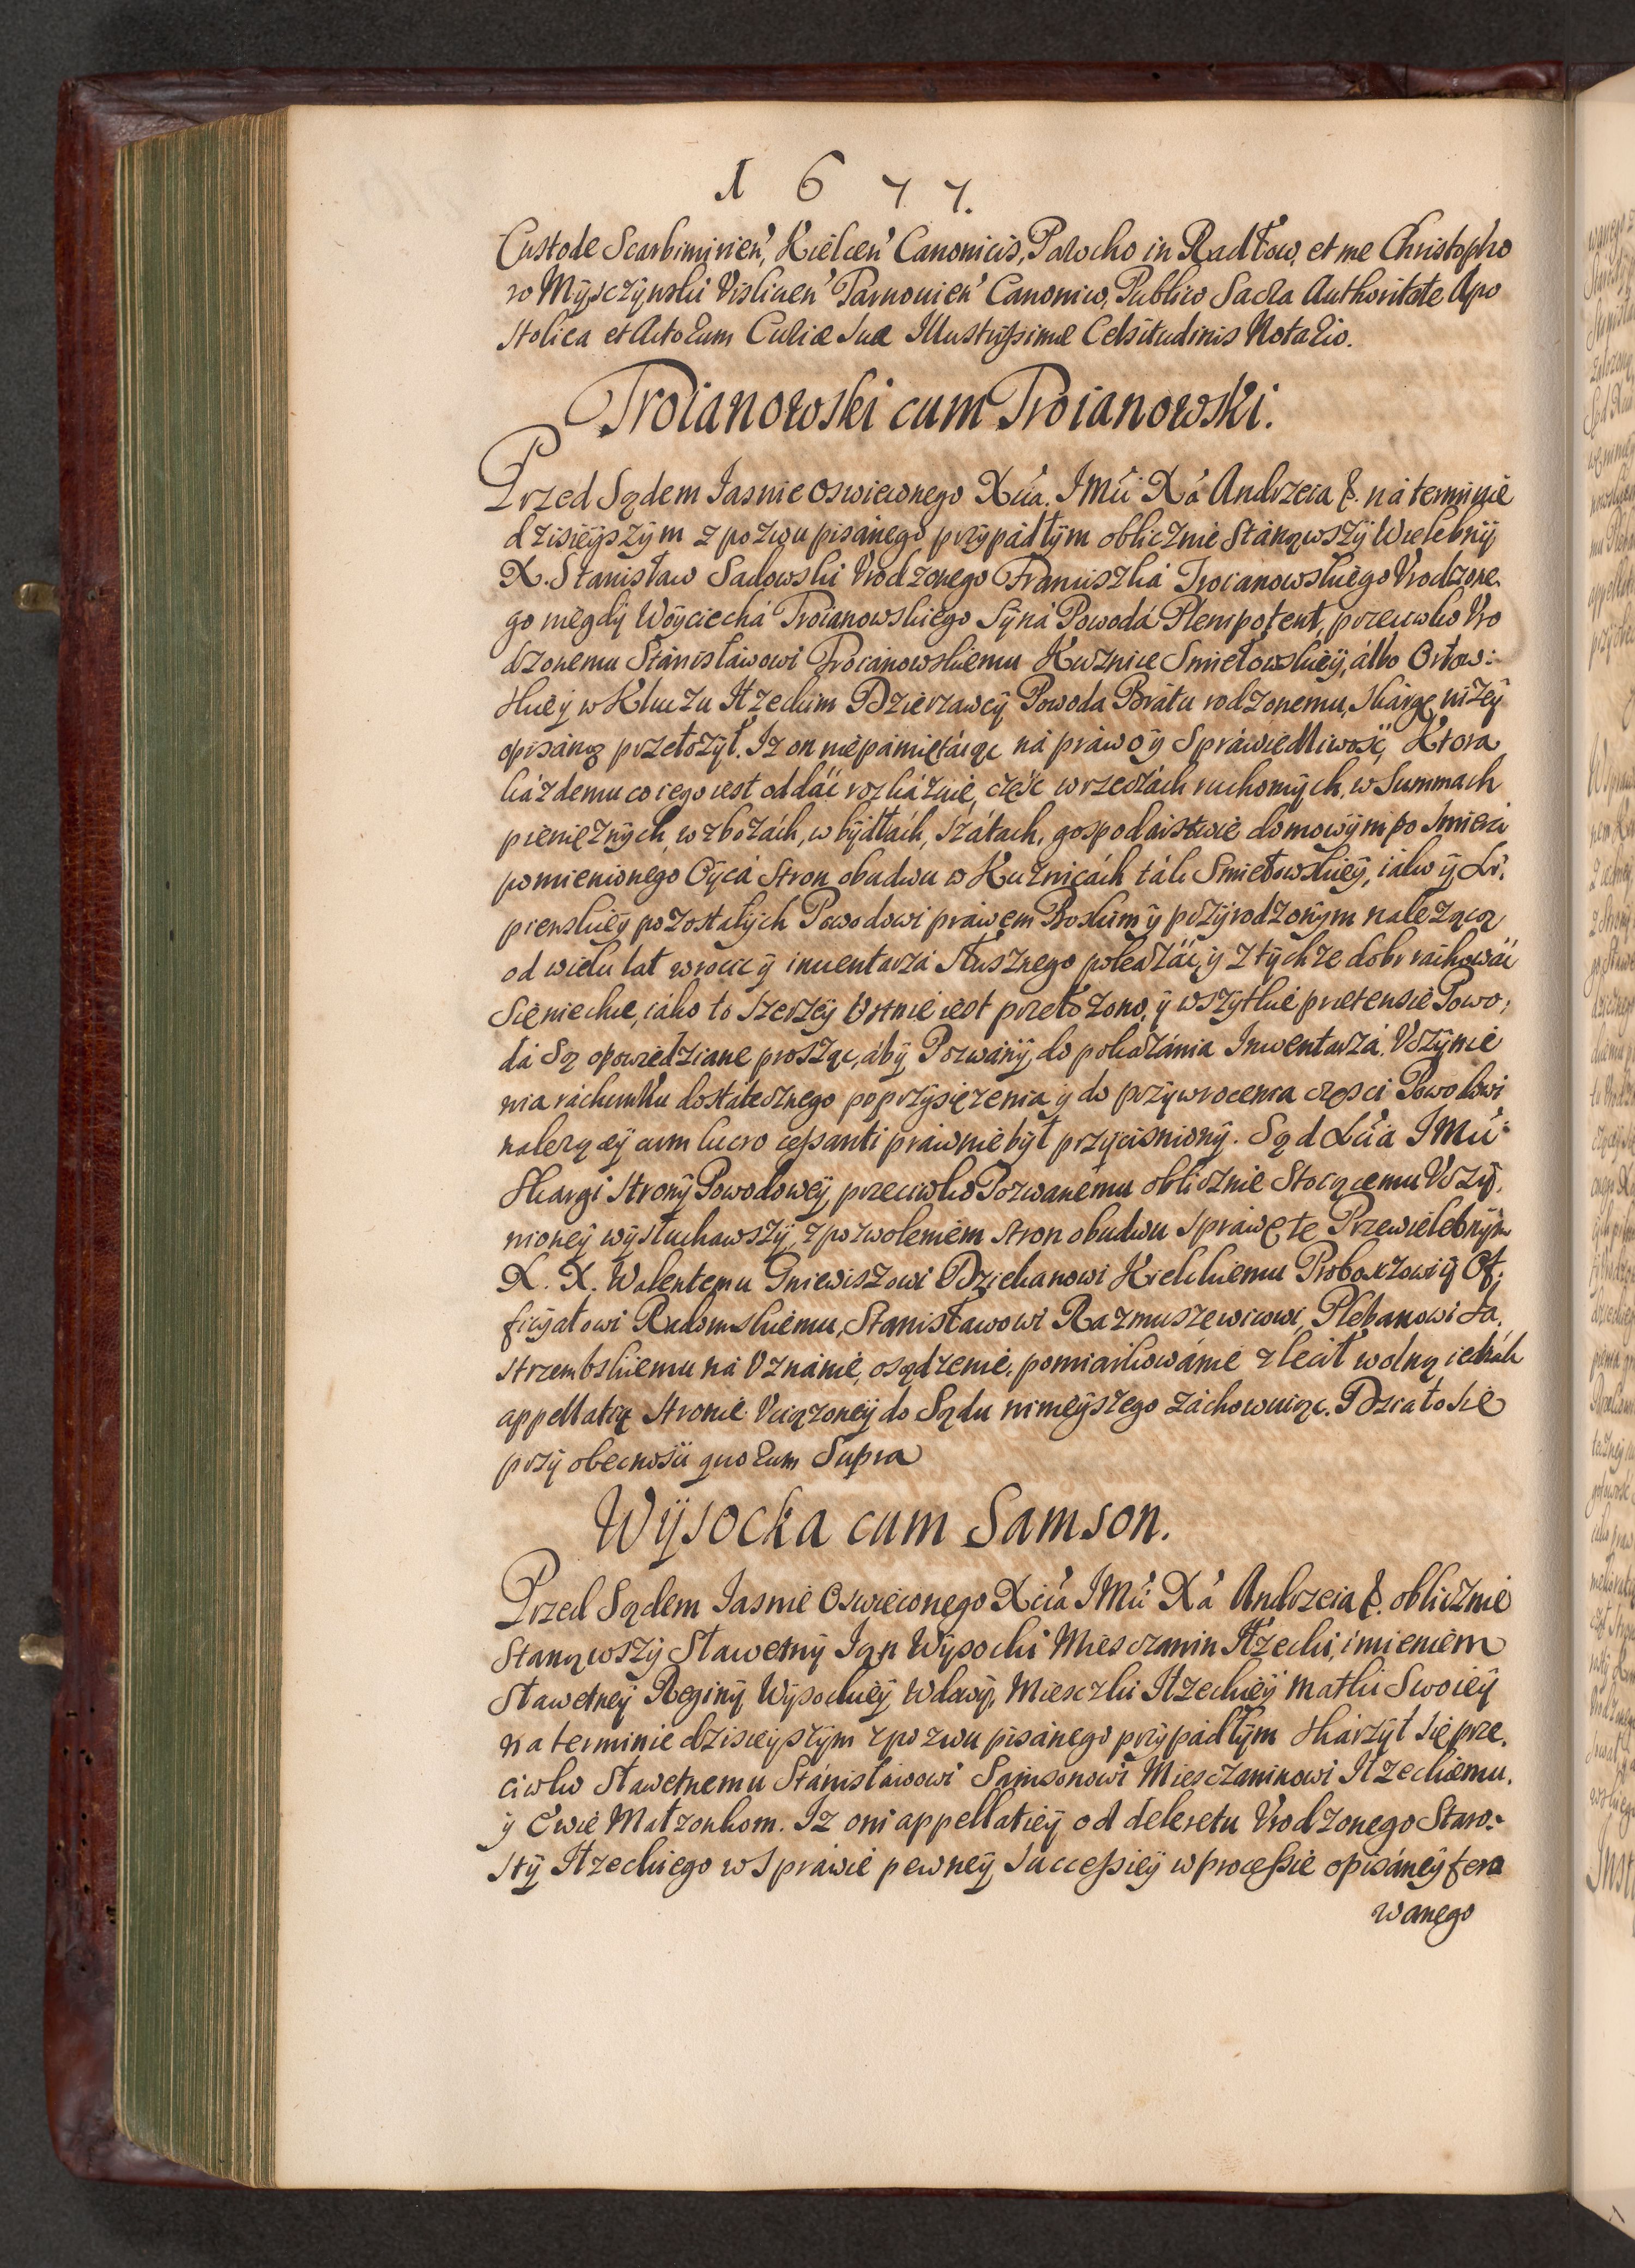 1 6 7 7.
Custode Scarbimirień, Kielceń Canonicis, Parocho in Radłow, et me Christopho
ro Myszczynski Visliceń Tarnovień Canonico, Publico Sacra Authoritate Apo
stolica et Actorum Curiæ Suæ Illustrissimæ Celsitudinis Notario.
Troianowski cum Troianowski.
Przed Sądem Iasnie oswieconego Xcia IMci Xa Andrzeia &. ná terminie
dzisieyszym z pozwu pisánego przypádłym oblicznie Stánąwszy Wielebny
X. Stanisław Sadowski Vrodzonego Franciszká Troianowskiego Vrodzone
go niegdy Woyciechá Troianowskiego Syná Powodá Plenipotent, przeciwko Vro
dzonemu Stánisłáwowi Troianowskiemu Kuznice Smiełowskiey, álbo Orłow:
skiey w Kluczu Iłzeckim Dzierzawcy Powoda Brátu rodzonemu, skárgę nizey
opisáną przełozył. Iz on niepámiętáiąc ná práwo y Spráwiedliwość, Ktora
káżdemu co iego iest oddáć rozkáżuie, część w rzeczách ruchomych, w Summach
pienięznych, w zbożách, w bydłách, szátach, gospodárstwie domowym po Smierci
pomienionego Oycá Stron obudwu w Kuznicách ták Smiełowskiey, iáko y Li:
pienskiey pozostáłych Powodowi práwem Boskim y przyrodzonym nalezącą
od wielu lat wrocic y inuentarzá słusznego pokazáć, y z tychze dobr ráchowáć
Sie niechce, iáko to szerzey Vstnie iest przełozono, y wszytkie pretensie Powo:
dá Są opowiedziane prosząc, áby Pozwány, do pokazánia Inwentarzá, Vczynie
nia ráchunku dostátecznego poprzysięzenia y do przywrocenia częsci Powodowi
nalezącey cum lucro cessanti práwnie był przyciśniony. Sąd Xcia IMci
Skargi strony Powodowey, przeciwko Pozwanemu oblicznie Stoiącemu Vczy:
nioney wysłuchawszy, z pozwoleniem stron obudwu spráwę te Przewielebnym
X. X. Walentemu Gniewiszowi Dziekanowi Kieleckiemu Proboszczowi y Of:
ficyałowi Radomskiemu, Stanisławowi Razmuszewicowi, Plebanowi Ja
strzembskiemu ná Vznánie, osądzenie, pomiarkowánie zlecił wolną iednák
appellatią stronie Vciązoney do Sądu ninieyszego záchowuiąc. Dziáło się
przy obecnosci quorum Supra
Wysocka cum Samson.
Przed Sądem Iasnie Oswieconego Xcia IMci Xa Andrzeia &. oblicznie
Stanąwszy Sławetny Ian Wysocki Miesczanin Iłzecki, imieniem
Sławetney Reginy Wysockiey Wdowy, Miesczki Iłzeckiey matki Swoiey
na terminie dzisieyszym z pozwu pisánego przypádłym skárzył się prze:
ciwko Sławetnemu Stánisłáwowi Samsonowi Miesczaninowi Iłzeckiemu,
y Ewie Małzonkom. Iz oni appellatiey od dekretu Vrodzonego Staro:
sty Iłzeckiego w spráwie pewney successiey w processie opisáney fero
wanego